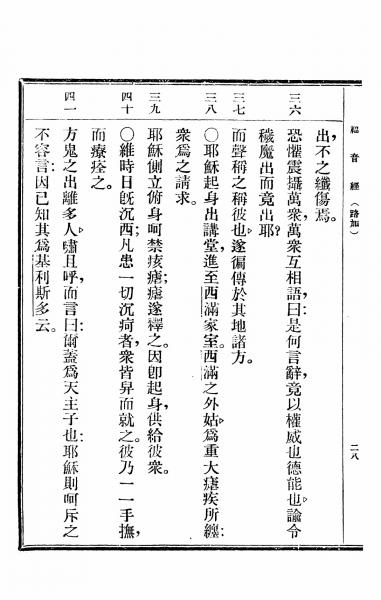 福音經（路加）
二八
出，不之纖傷焉。
三六
恐懼震攝萬衆，萬衆互相語曰：是何言辭，竟以權威也德能也，諭令
穢魔出而竟出耶？
三七
而聲稱之稱彼也，遂徧傳於其地諸方。
三八
〇耶穌起身出講堂，進至西滿家室。西滿之外姑，爲重大瘧疾所纏：
衆爲之請求。
三九
耶穌側立俯身呵禁痎瘧；瘧遂釋之。因卽起身，供給彼衆。
四十
〇維時日旣沉西；凡患一切沉疴者，衆皆舁而就之。彼乃一一手撫，
而療痊之。
四一
方鬼之出離多人，嘯且呼，而言曰：爾蓋爲天主子也：耶穌則呵斥之
不容言：因已知其爲基利斯多云。